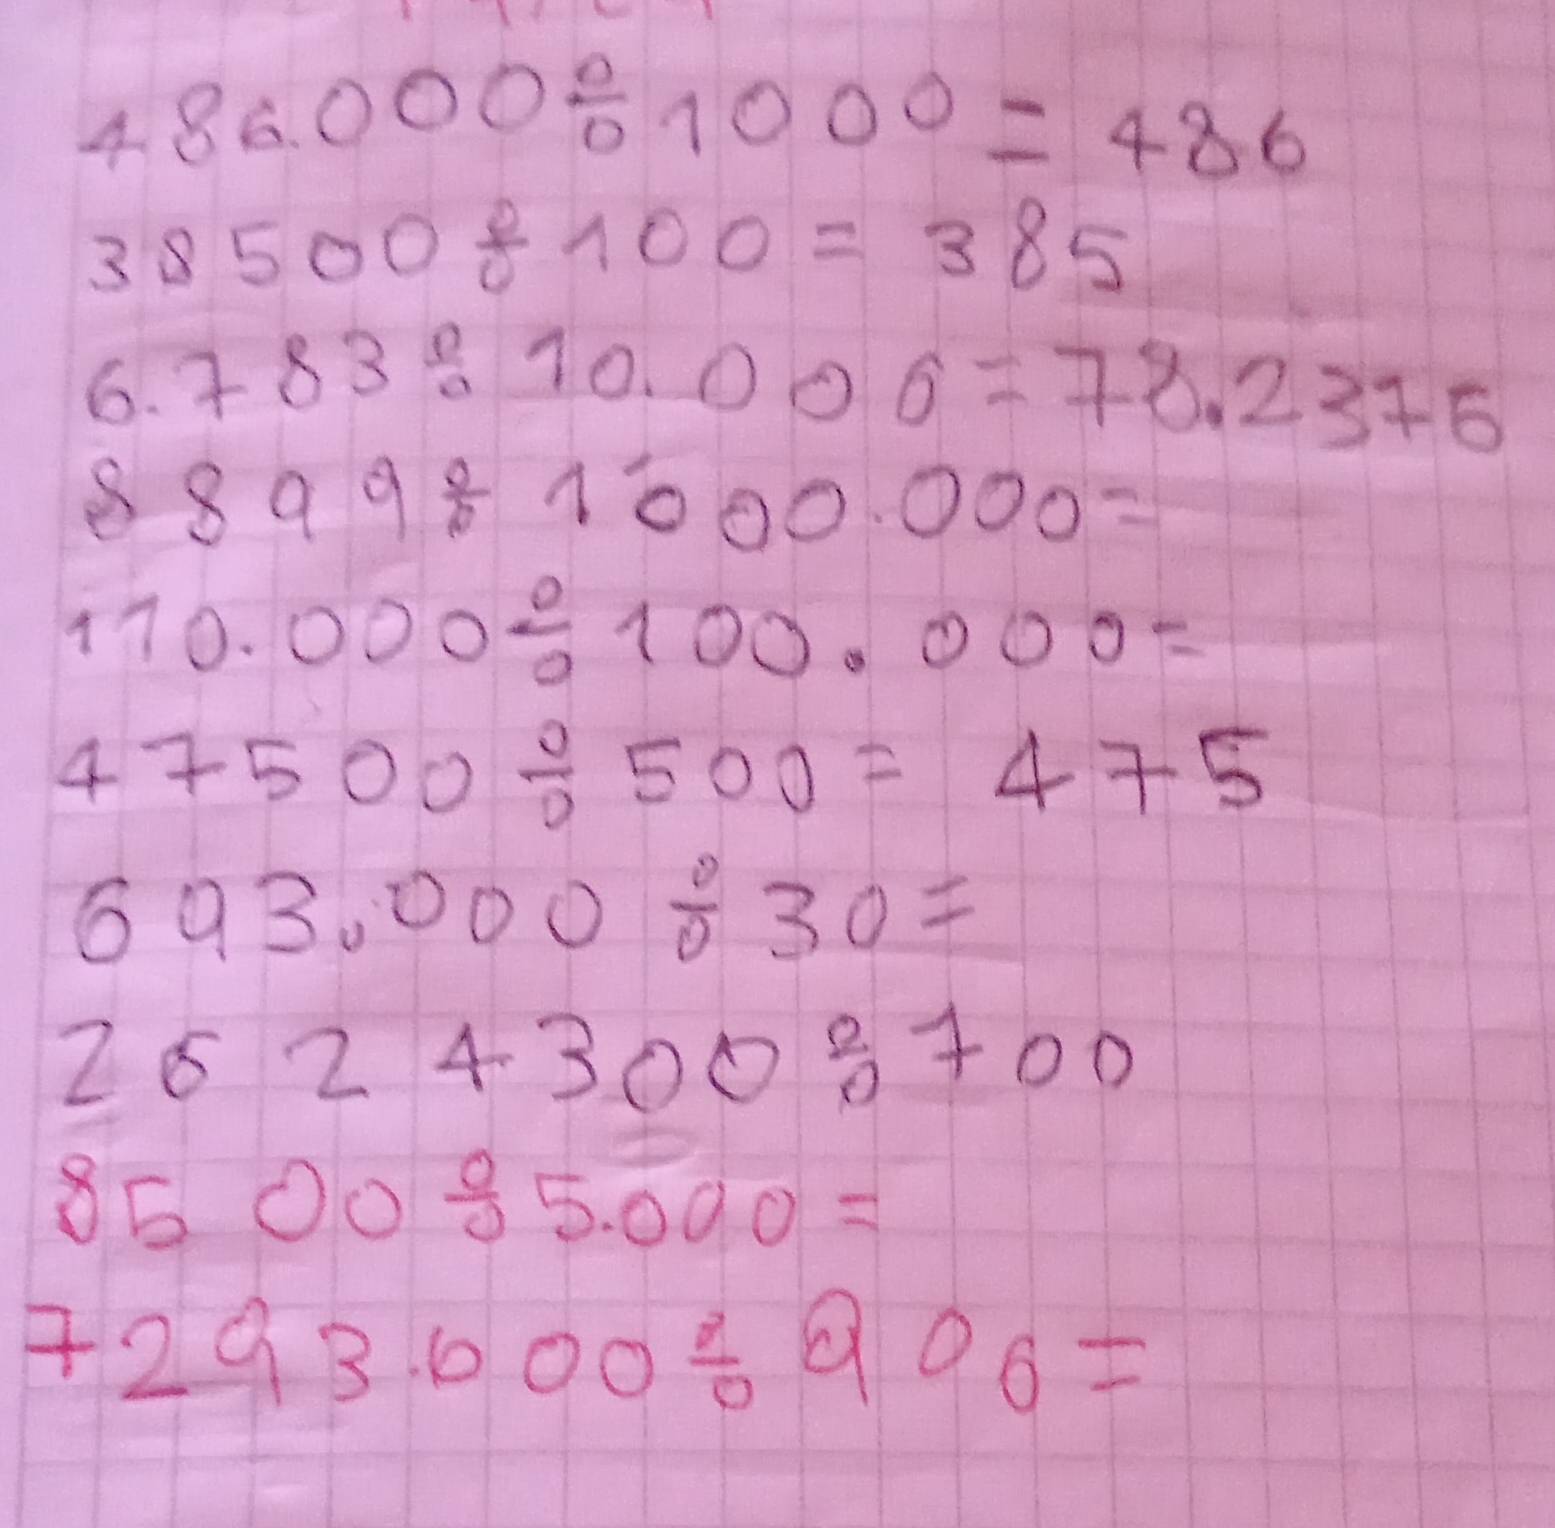 486.000÷1000=486
38500÷100=385
6.783÷10.000=78.2375
8899÷1'000.000=
110.000÷100.000=
47500÷500=475
693.000÷30=
2624300÷700
8500÷5.000=
7293.600÷900=